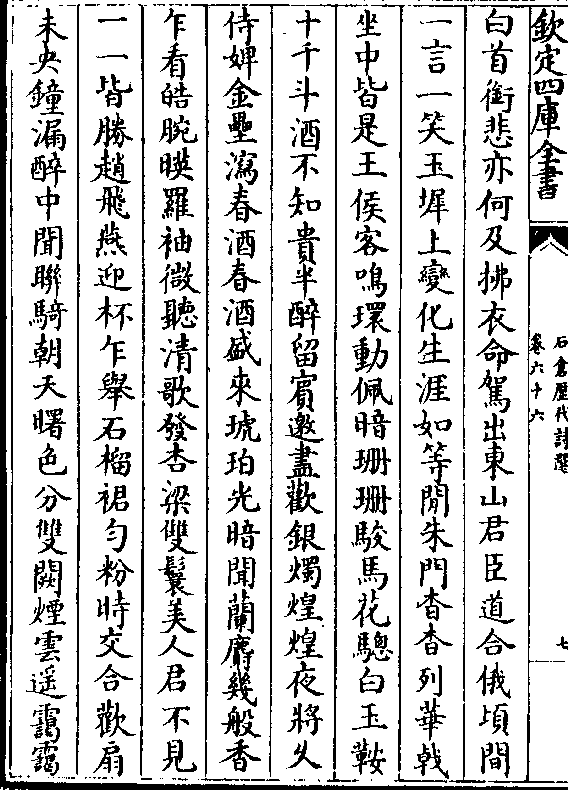 欽定四庫全書
石倉歷代詩選
卷六十六
七
白首銜悲亦何及拂衣命駕出東山君臣道合俄頃間
一言一笑玉墀上變化生涯如等閒朱門杳杳列華戟
坐中皆是王侯客鳴環動佩暗珊珊駿馬花驄白玉鞍
十千斗酒不知貴半醉留賓邀盡歡銀燭煌煌夜將久
侍婢金罍瀉春酒春酒盛來琥珀光暗聞蘭麝幾般香
乍看皓腕映羅袖微聽清歌發杏梁雙鬟美人君不見
一一皆勝趙飛燕迎杯乍舉石榴裙勻粉時交合歡扇
未央鐘漏醉中聞聯騎朝天曙色分雙闕煙雲遥靄靄